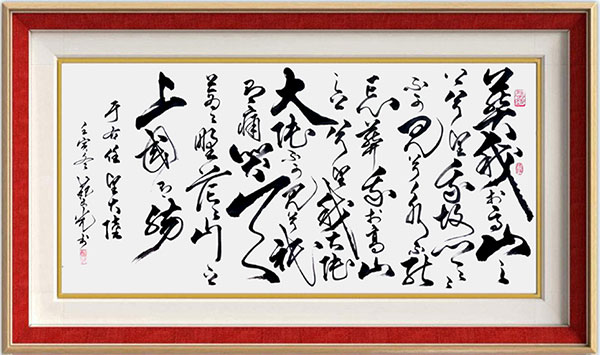 葬我於高山之
上兮望我故乡々々
不可见兮永不能
忘葬我於高山
之上兮望我大陆
大陆不可见兮只
有痛哭天
苍々野茫々山之
上國有殇
于右任望大陸
壬寅冬 书